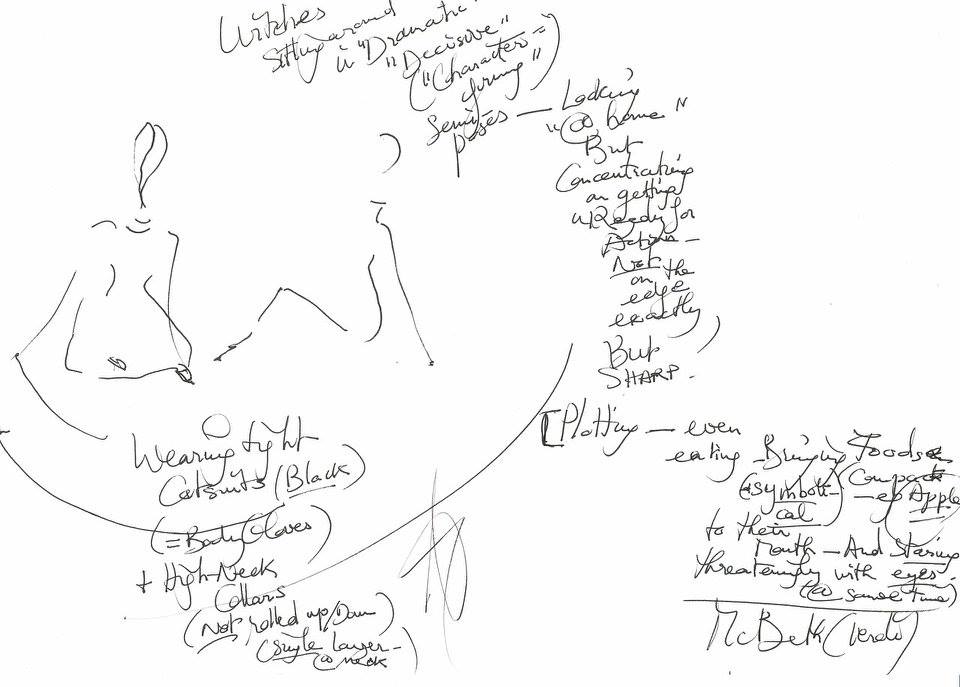 Witches
Sitting around
in "Dramatic"
"Decisive"
("Character=
forming")
Semi=
poses — Looking
"@ home"
But
Concentrating
on getting
Ready for
Action —
Not
on the
edge
exactly)
But
SHARP.
[Plotting — even
eating Bringing Foods
(symboli-
cal) Compact
— eg Apple
to their
Mouth — And Staring
threateningly with eyes.
(@ same time)
McBeth (Verdi)
Wearing tight
Catsuits (Black)
(= Body Gloves)
+ High-Neck
Collars
(Not rolled up/Down)
(single layer -
@ neck